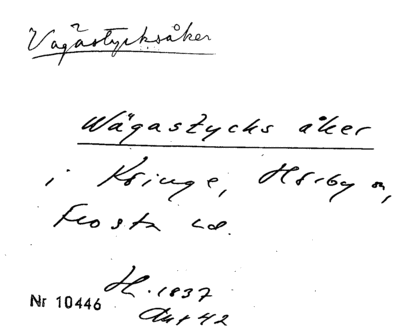 Vågåstycksåker
Wägastycks åker
i Kringe, Hörby sn,
Frosta hd.
H. 1837
Akt 42
Nr 10446